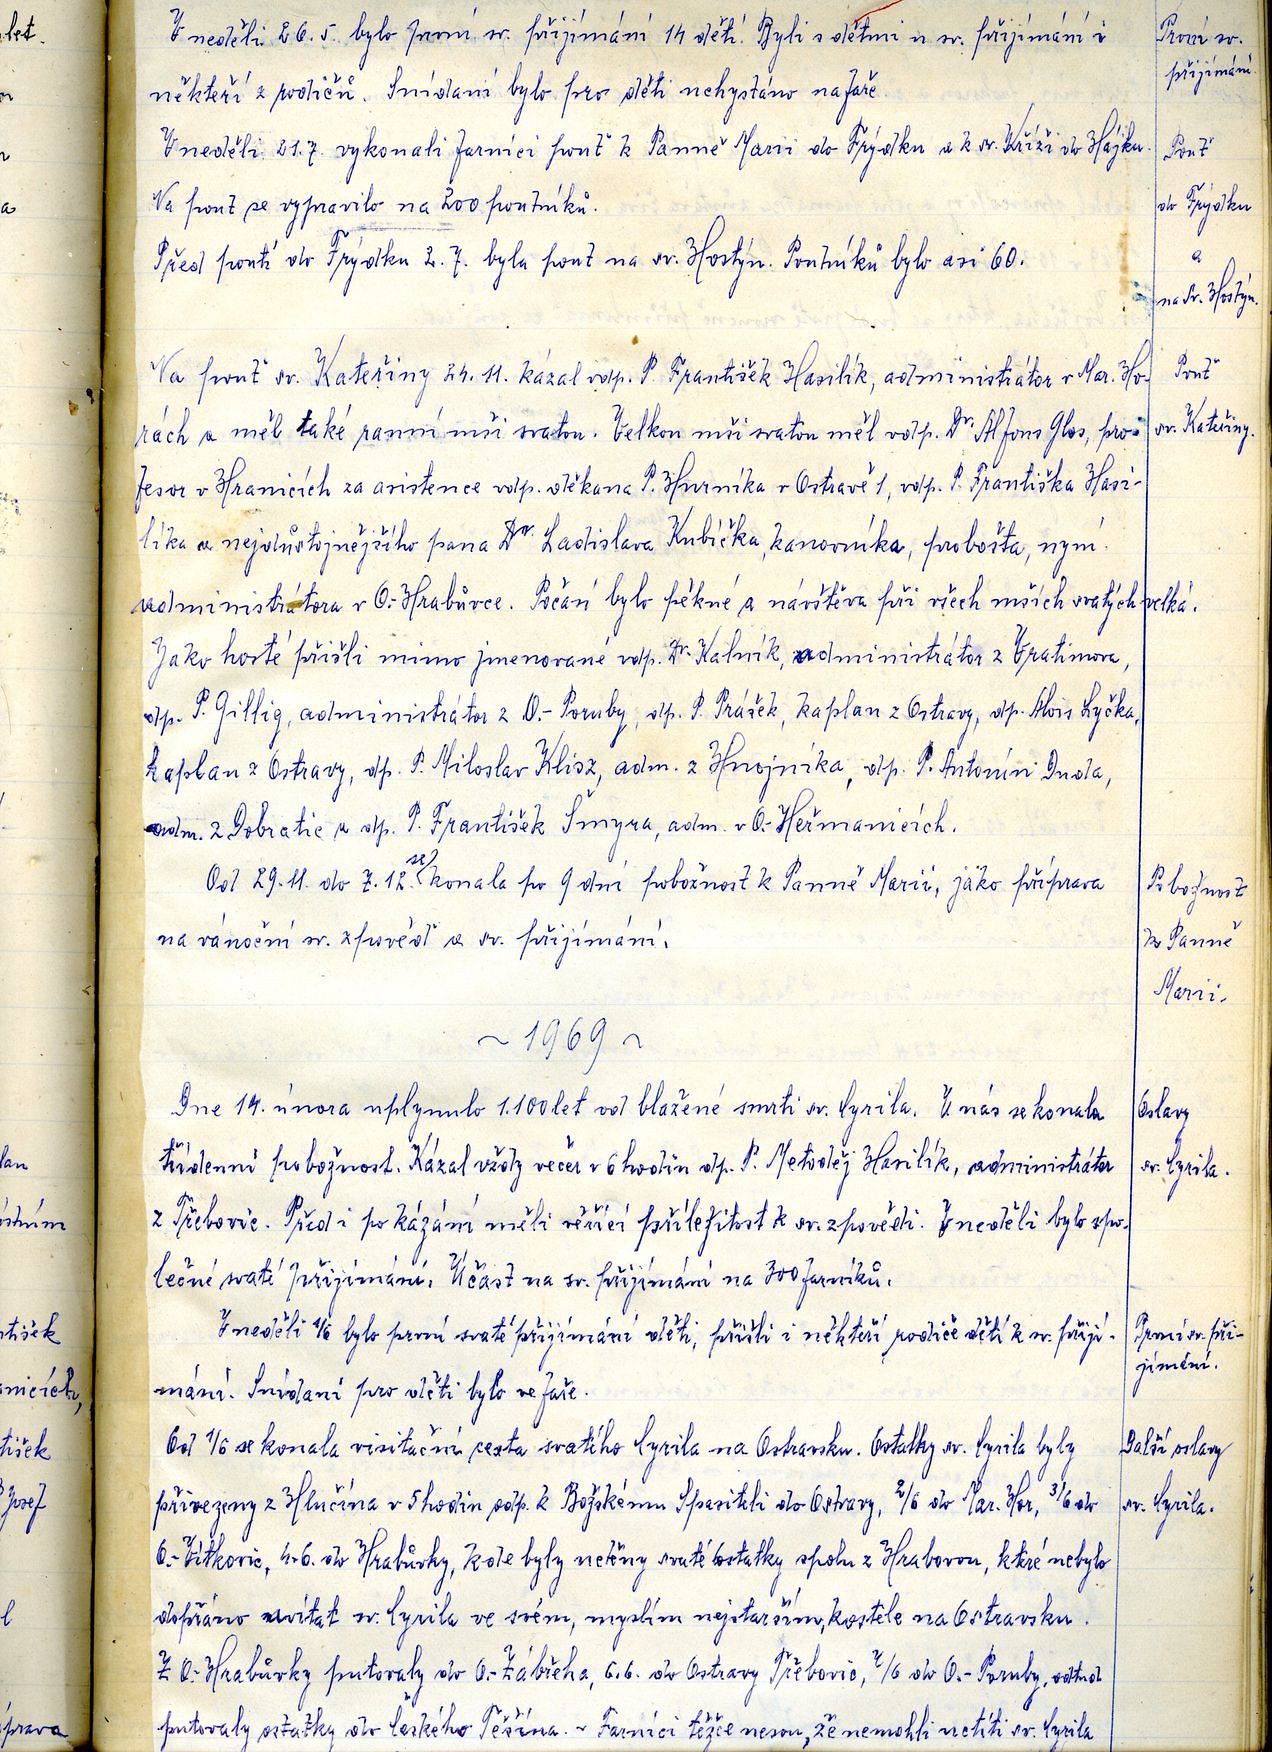 V neděli 26.5. bylo první sv. přijímání 14 dětí. Byli s dětmi u sv. přijímání i
někteří z rodičů. Snídaní bylo pro děti nchystáno na faře.
První sv.
přijímání.
V neděli 21.7. vykonali farníci pouť k Panně Marii do Frýdku a k sv. Kříži do Hájku.
Na pouť se vypravilo na 200 poutníků.
Před poutí do Frýdku 2.7. byla pouť na sv. Hostýn. Poutníků bylo asi 60.
Pouť
do Frýdku
a
na Sv. Hostýn.
Na pouť sv. Kateřiny 24.11. kázal vdp. P. František Hasilík, administrátor v Mar. Ho-
rách a měl také ranní mši svatou. Velkou mši svatou měl vdp. Dr. Alfons Glos, pro-
fesor v Hranicích za asistence vdp. děkana P. Hurníka v Ostravě 1, vdp. P. Františka Hasi-
líka a nejdůstojnějšího pana Dr. Ladislava Kubíčka, kanovníka, probošta, nyní
administrátora v O.-Hrabůvce. Počasí bylo pěkné a návštěva při všech mších svatých velká.
Jako hosté přišli mimo jmenované vdp. Dr. Kalník, administrátor z Vratimova,
dp. P. Gillig, administrátor z O.-Poruby, dp. P. Prášek, kaplan z Ostravy, dp. Alois Lyčka,
kaplan z Ostravy, dp. P. Miloslav Klisz, adm. z Hnojníka, dp. P. Antonín Duda,
adm. z Dobratic a dp. P. František Šmyra, adm. v O.-Heřmanicích.
Pouť
sv. Kateřiny.
Od 29.11. do 7.12. se konala po 9 dní pobožnost k Panně Marii, jako příprava
na vánoční sv. zpověď a sv. přijímání.
Pobožnost
k Panně
Marii.
~ 1969 ~
Dne 14. února uplynulo 1.100 let od blažené smrti sv. Cyrila. U nás se konala
třídenní pobožnost. Kázal vždy večer v 6 hodin dp. P. Metoděj Hasilík, administrátor
z Třebovic. Před i po kázání měli věřící příležitost k sv. zpovědi. V neděli bylo spo-
lečné svaté přijímání. Účast na sv. přijímání na 300 farníků.
Oslavy
sv. Cyrila.
V neděli 1/6 bylo první svaté přijímání dětí, přišli i někteří rodiče dětí k sv. přijí-
mání. Snídaní pro děti bylo ve faře.
První sv. při-
jímání.
Od 1/6 se konala visitační cesta svatého Cyrila na Ostravsku. Ostatky sv. Cyrila byly
přivezeny z Hlučína v 5 hodin odp. k Božskému Spasiteli do Ostravy, 2/6 do Mar. Hor, 3/6 do
O.-Vítkovic, 4.6. do Hrabůvky, kde byly uctěny svaté ostatky spolu z Hrabovou, které nebylo
dopřáno uvítat sv. Cyrila ve svém, myslím nejstarším, kostele na Ostravsku.
Z O.-Hrabůvky putovaly do O.-Zábřeha, 6.6. do Ostravy Třebovic, 7/6 do O.-Poruby, odtud
putovaly ostatky do Českého Těšína. - Farníci těžce nesou, že nemohli uctíti sv. Cyrila
Další oslavy
sv. Cyrila.